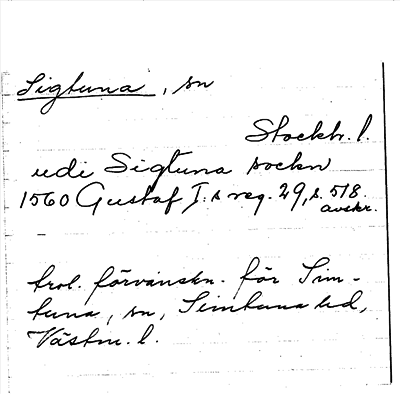 Sigtuna, sn
Stockh. l.
udi Sigtuna sockn
1560 Gustaf I:s reg. 29, s. 518.
avskr.
trol. förvanskn. för Sim-
tuna, sn, Simtuna hd,
Västm. l.